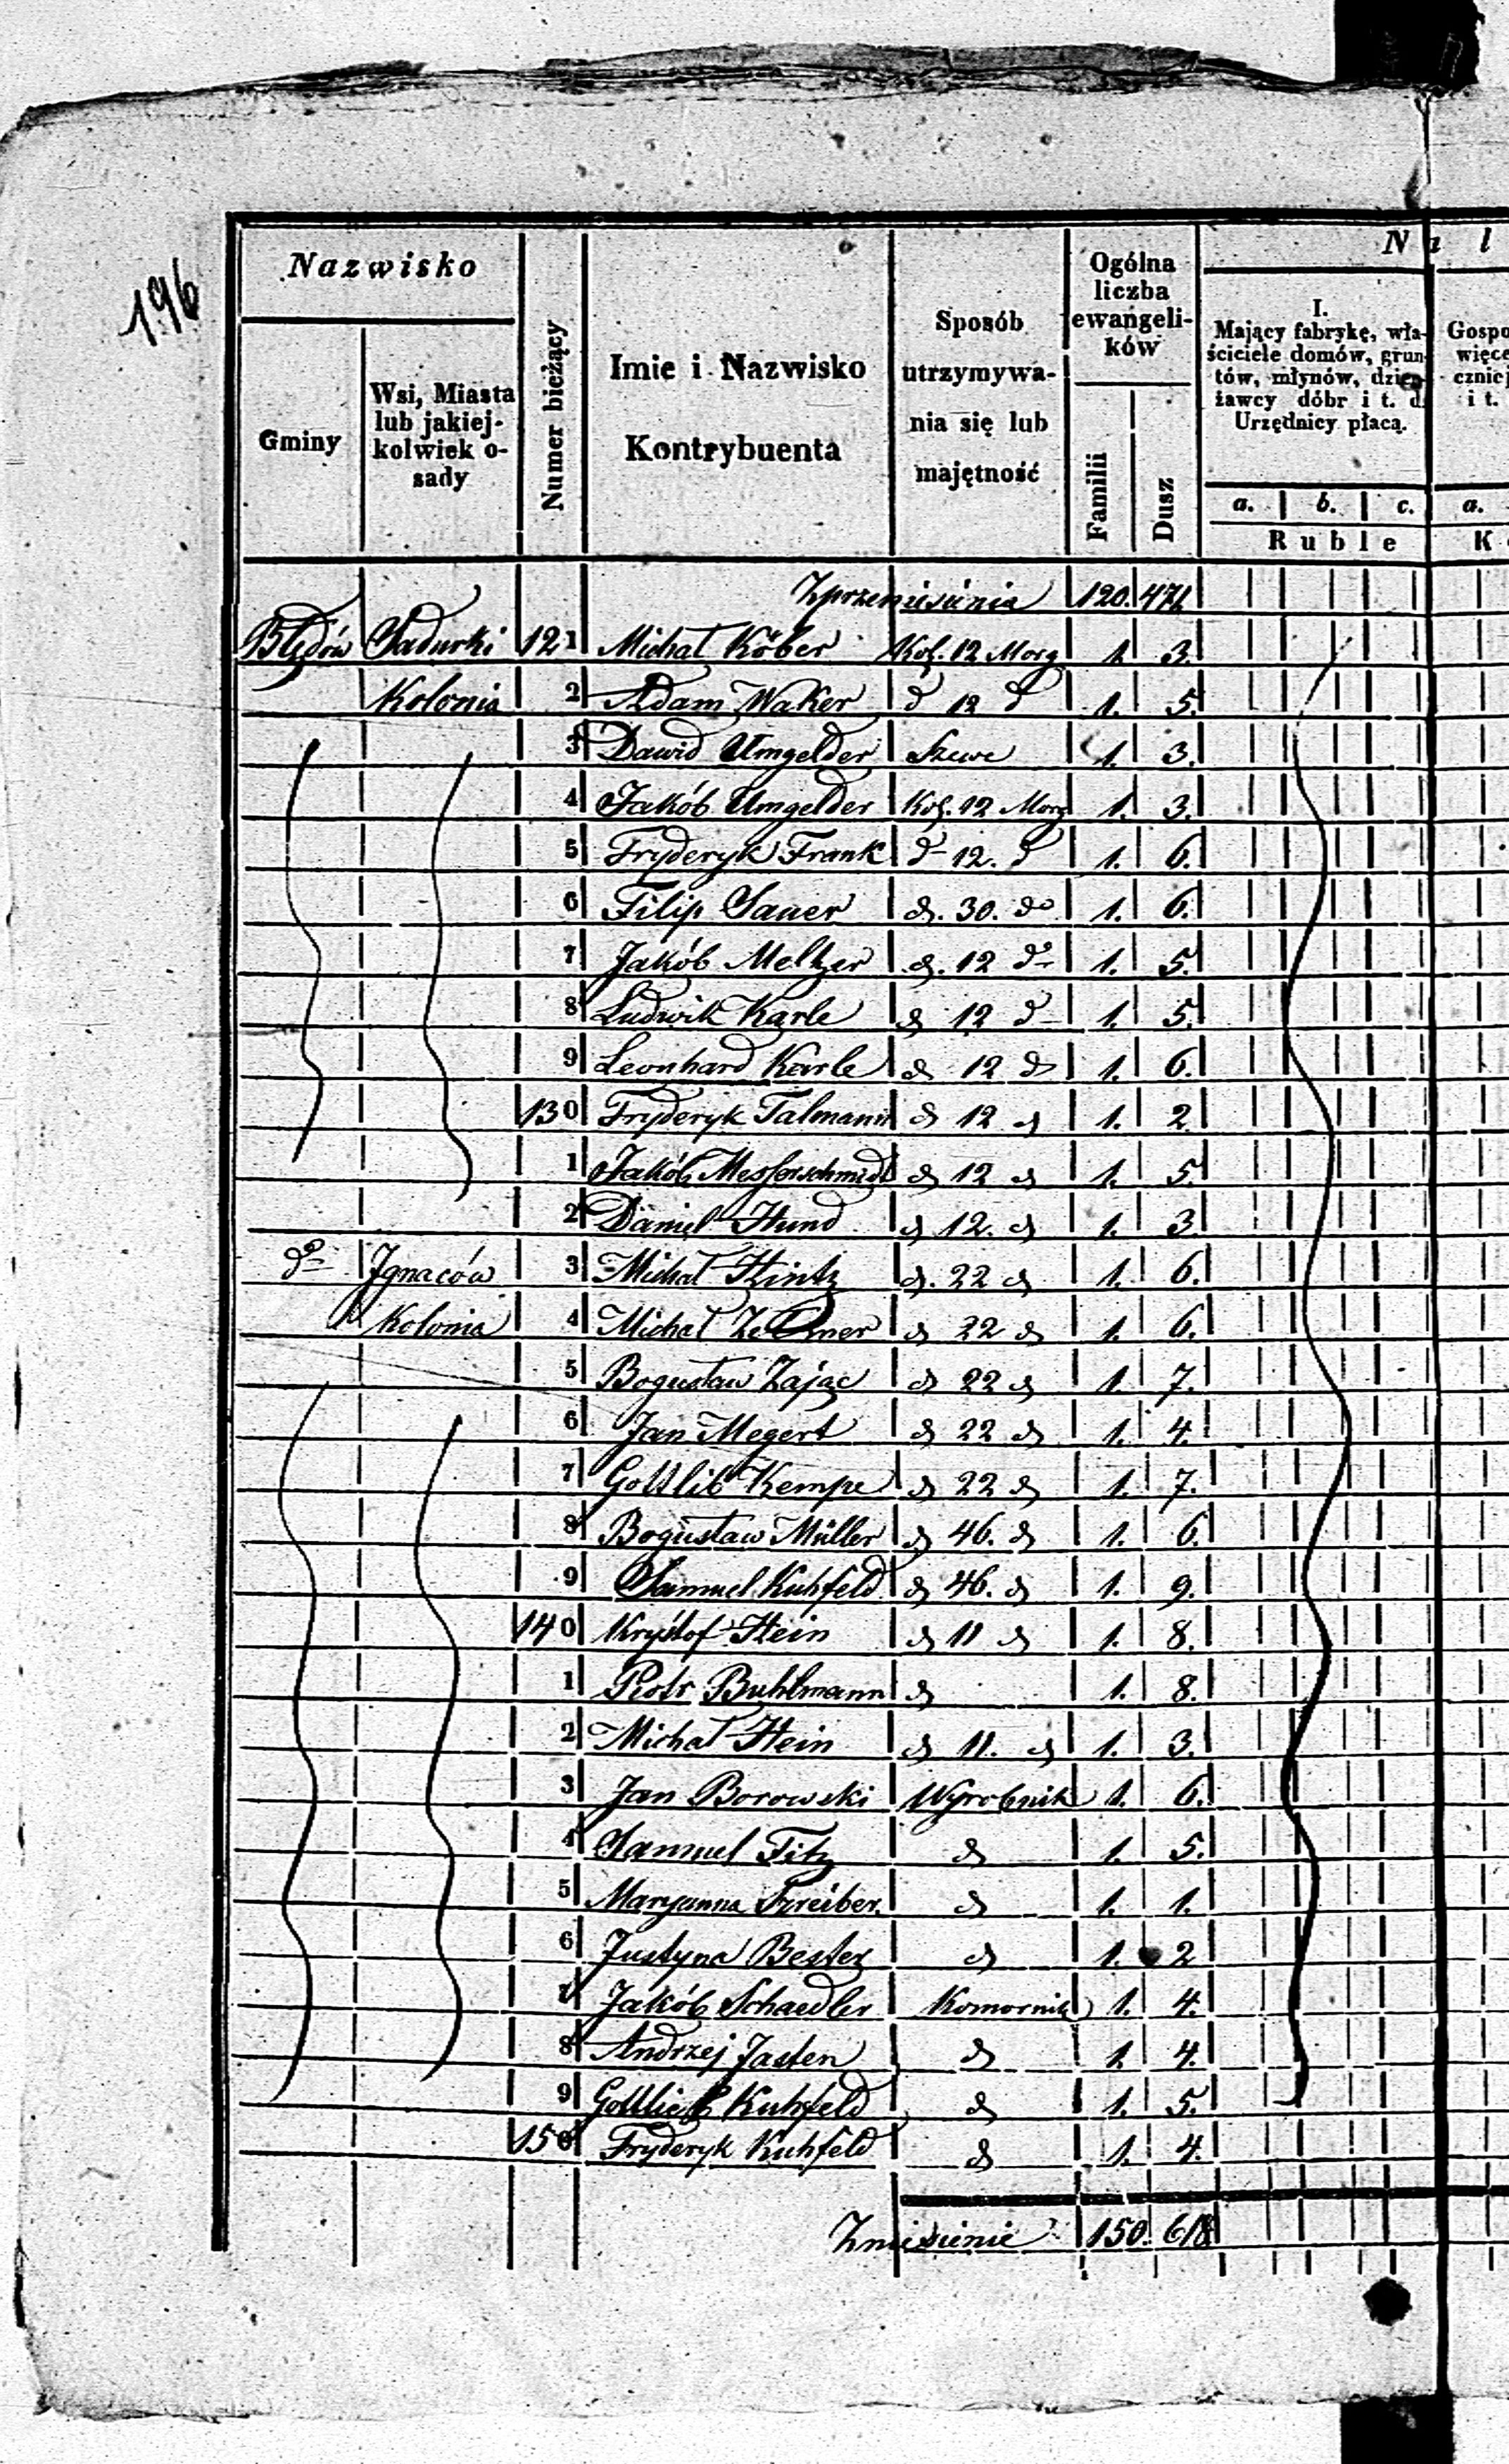 196
Nazwisko
Gminy
Wsi, Miasta
lub jakiej-
kolwiek o-
sady
Numer bieżący
Imie i Nazwisko
Kontrybuenta
Sposób
utrzymywa-
nia się lub
majętność
Ogólna
liczba
ewangeli-
ków
Familii
Dusz
N a l
I.
Mający fabrykę, wła-
ściciele domów, grun-
tów, młynów, dzier-
żawcy dóbr i t. d.
Urzędnicy płacą.
a. b. c.
Ruble
Gospo
więce
cznie
i t.
a.
K
Zprzeniesienia 120. 471
Błędów Sadurki 121 Michał Köber Kol. 12 Morg 1. 3.
Kolonia 2 Adam Waker d 12 d 1. 5.
3 Dawid Umgelder Szewc 1. 3.
4 Jakób Umgelder Kol. 12 Morg 1. 3.
5 Fryderyk Frank d 12. d 1. 6.
6 Filip Sauer d. 30. do 1. 6.
7 Jakób Meltzer d. 12 do 1. 5.
8 Ludwik Karle d 12 d 1. 5.
9 Leonhard Karle d 12 d 1. 6.
130 Fryderyk Talmann d 12 d 1. 2.
1 Jakób Messerschmidt d 12 d 1. 5.
2 Daniel Hund d 12. d 1. 3
do Ignaców 3 Michał Hintz d. 22 d 1. 6.
Kolonia 4 Michał d 22 d 1. 6.
5 Bogusław Zając d 22 d 1. 7.
6 Jan Megert d 22 d 1. 4.
7 Gottlib Kempe d 22 d 1. 7.
8 Bogusław Müller d 46. d 1. 6.
9 Samuel Kuhfeld d 46. d 1. 9.
140 Krystof Hein d 11 d 1. 8.
1 Piotr Buhlmann d 1. 8.
2 Michał Hein d 11. d 1. 3.
3 Jan Borowski Wyrobnik 1. 6.
4 Samuel Fitz d 1. 5.
5 Maryanna d 1. 1.
6 Justyna Bester d 1. 2
7 Jakób Schaedler Komornik 1. 4.
8 Andrzej Jasten d 1. 4.
9 Gottlieb Kuhfeld d 1. 5.
150 Fryderyk Kuhfeld d 1. 4.
Zniesienie 150. 618